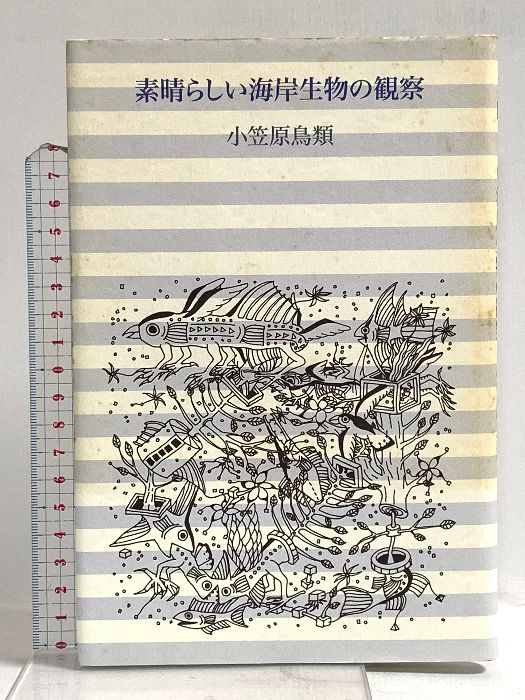 素晴らしい海岸生物の観察
小笠原鳥類
8
7
6
5
4
3
2
1
0
9
8
7
6
5
4
3
2
1
0